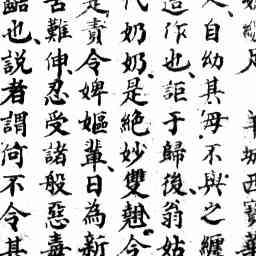 足 羊城西寶華
自幼其母不與之纏
造作也、詎于歸後、翁姑
代奶奶、是絕妙雙翹、今
是責令婢嫗輩、日為新
苦難伸、忍受諸般惡毒
也、說者謂何不令其